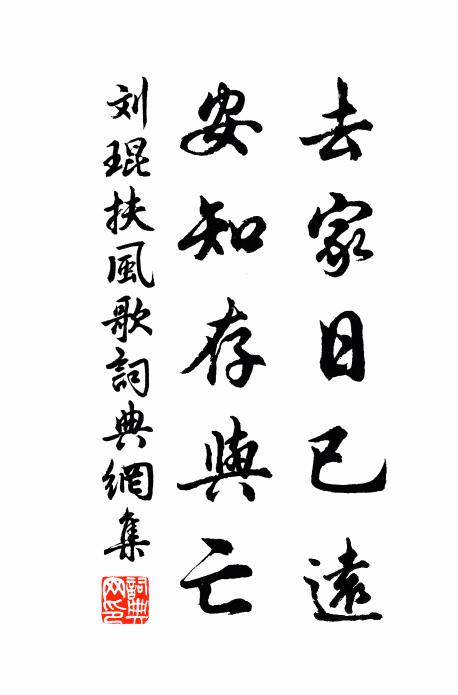 去家日已遠
安知存與亡
刘琨扶風歌詞典網集
詞典網印